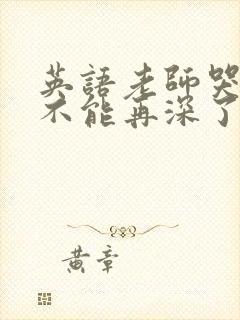 英語老師哭
不能再深了
黄章